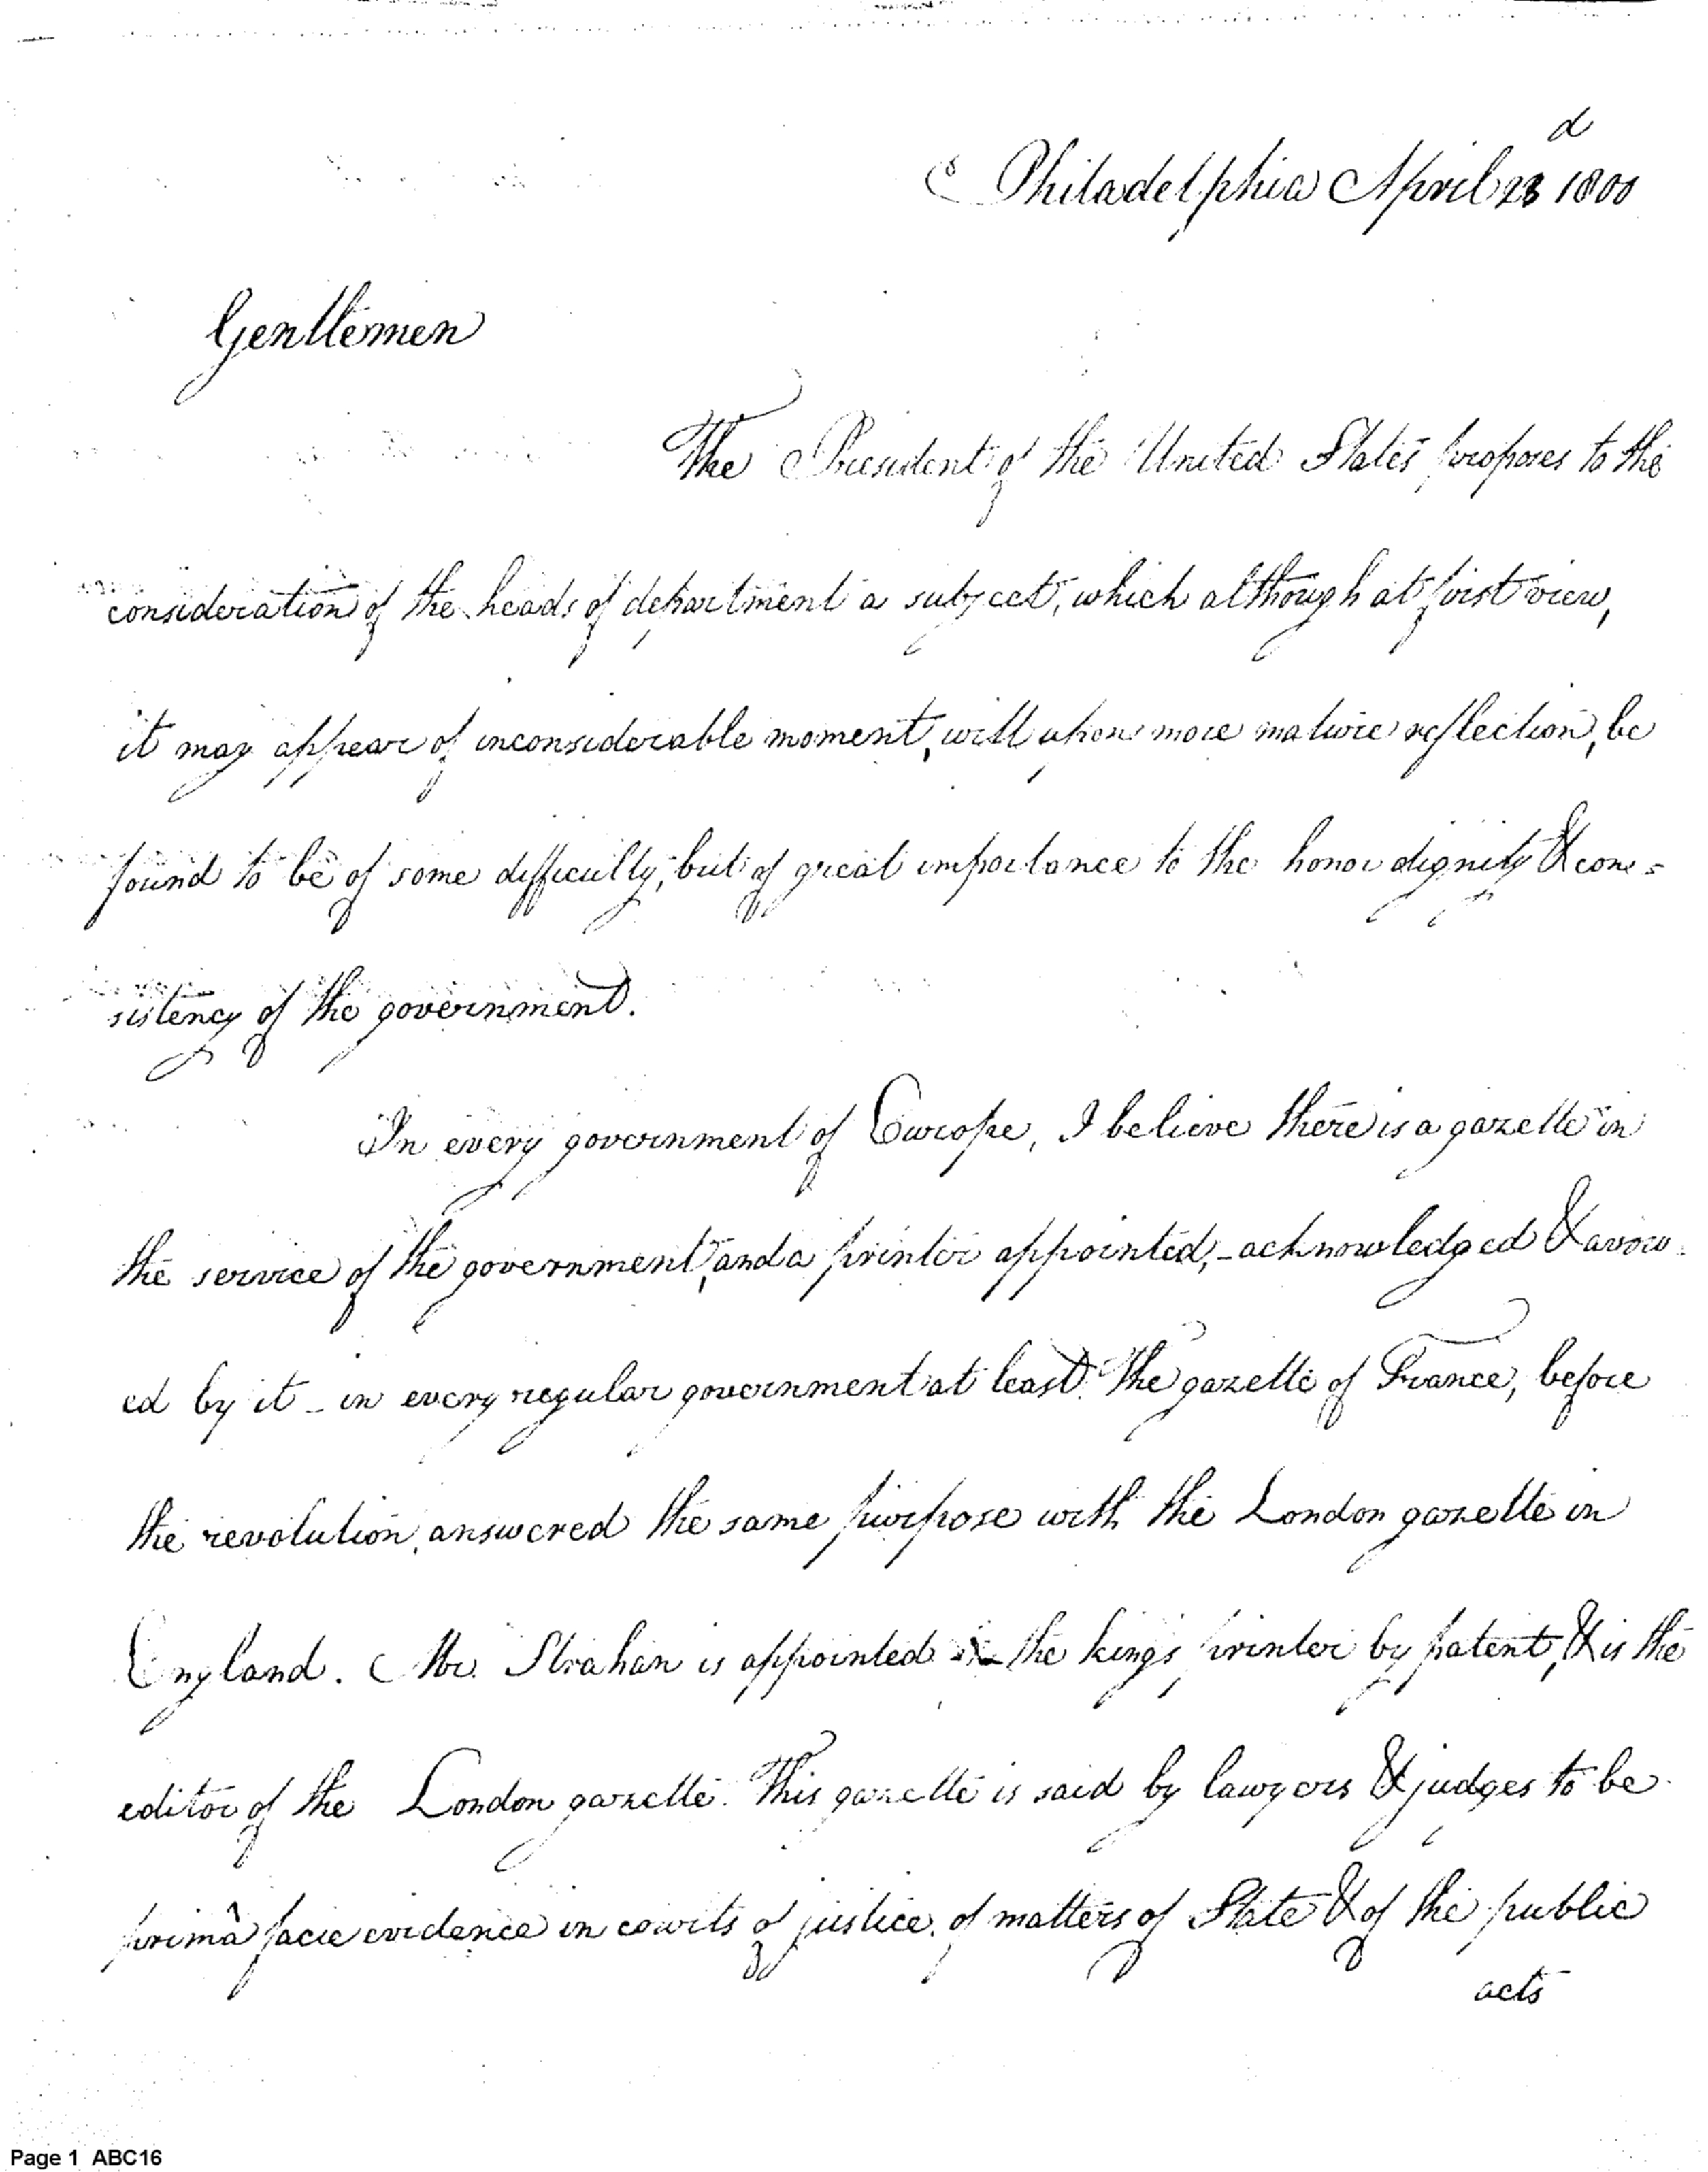 Philadelphia April 23d 1800
Gentlemen
The President of the United States proposes to the
consideration of the heads of department a subject, which although at first view,
it may appear of inconsiderable moment, will upon more mature reflection, be
found to be of some difficulty, but of great importance to the honor dignity & con=
sistency of the government.
In every government of Europe, I believe there is a gazette in
the service of the government, and a printer appointed, - acknowledged & avow
ed by it - in every regular government at least. The gazette of France, before
the revolution, answered the same purpose with the London gazette in
England. Mr. Strahan is appointed the kings printer by patent, & is the
editor of the London gazette. This gazette is said by lawyers & judges to be
primâ facie evidence in courts of justice, of matters of State & of the public
acts
Page 1 ABC16